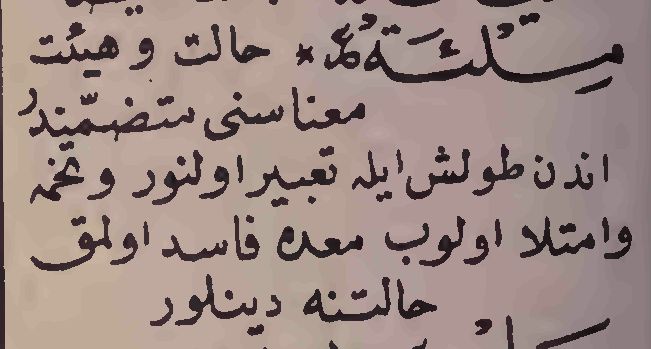 مِلْئَةٌ * حالت و هيئت
معناسنى متضمّندر
اندن طولش ايله تعبير اولنور و تخمه
وامتلا اولوب معده فاسد اولمق
حالتنه دينلور